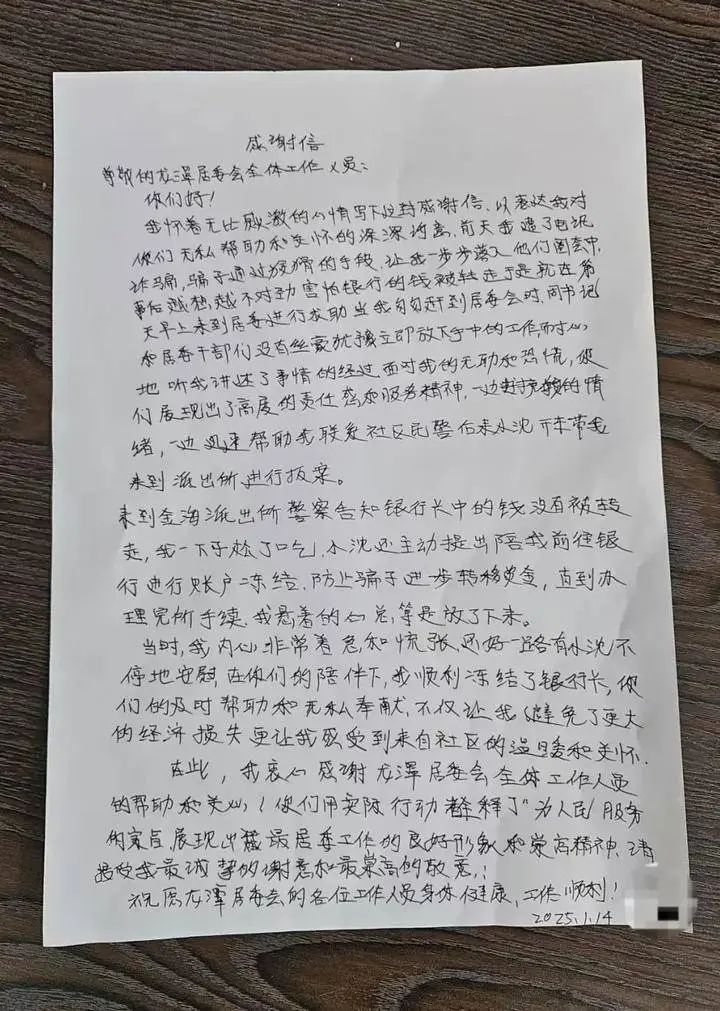 感谢信
尊敬的龙泽居委会全体工作人员:
你们好!
我怀着无比感激的心情写下这封感谢信,以表达我对
你们无私帮助和关怀的深深谢意,前天我遭了电讯
诈骗,骗子通过狡猾的手段,让我一步步落入他们圈套中,
事后越想越不对劲害怕银行的钱被转走于是就在第
天早上来到居委进行求助当我匆匆赶到居委会时,周书记
和居委干部们没有丝毫犹豫立即放下手中的工作,耐心
地听我讲述了事情的经过面对我的无助和恐慌,你
们展现出了高度的责任感和服务精神,一边安抚我的情
绪,一边迅速帮助我联系社区民警后来小沈开车带我
来到派出所进行报案。
来到金海派出所警察告知银行卡中的钱没有被转
走,我一下子松了口气,小沈还主动提出陪我前往银
行进行账户冻结,防止骗子进步转移资金,直到办
理完所手续,我悬着的心总算是放了下来。
当时,我内心非常着急和慌张,还好一路有小沈不
停地安慰,在你们的陪伴下,我顺利冻结了银行卡,你
们的及时帮助和无私奉献,不仅让我避免了更大
的经济损失更让我感受到来自社区的温暖和关怀.
在此,我衷心感谢龙泽居委会全体工作人员
的帮助和关心!你们用实际行动诠释了"为人民服务
的宗旨展现出基层居委工作的良好形象和崇高精神,请
接受我最诚挚的谢意和最崇高的敬意,:
祝愿龙泽居委会的各位工作人员身体健康,工作顺利!
2025.1.14